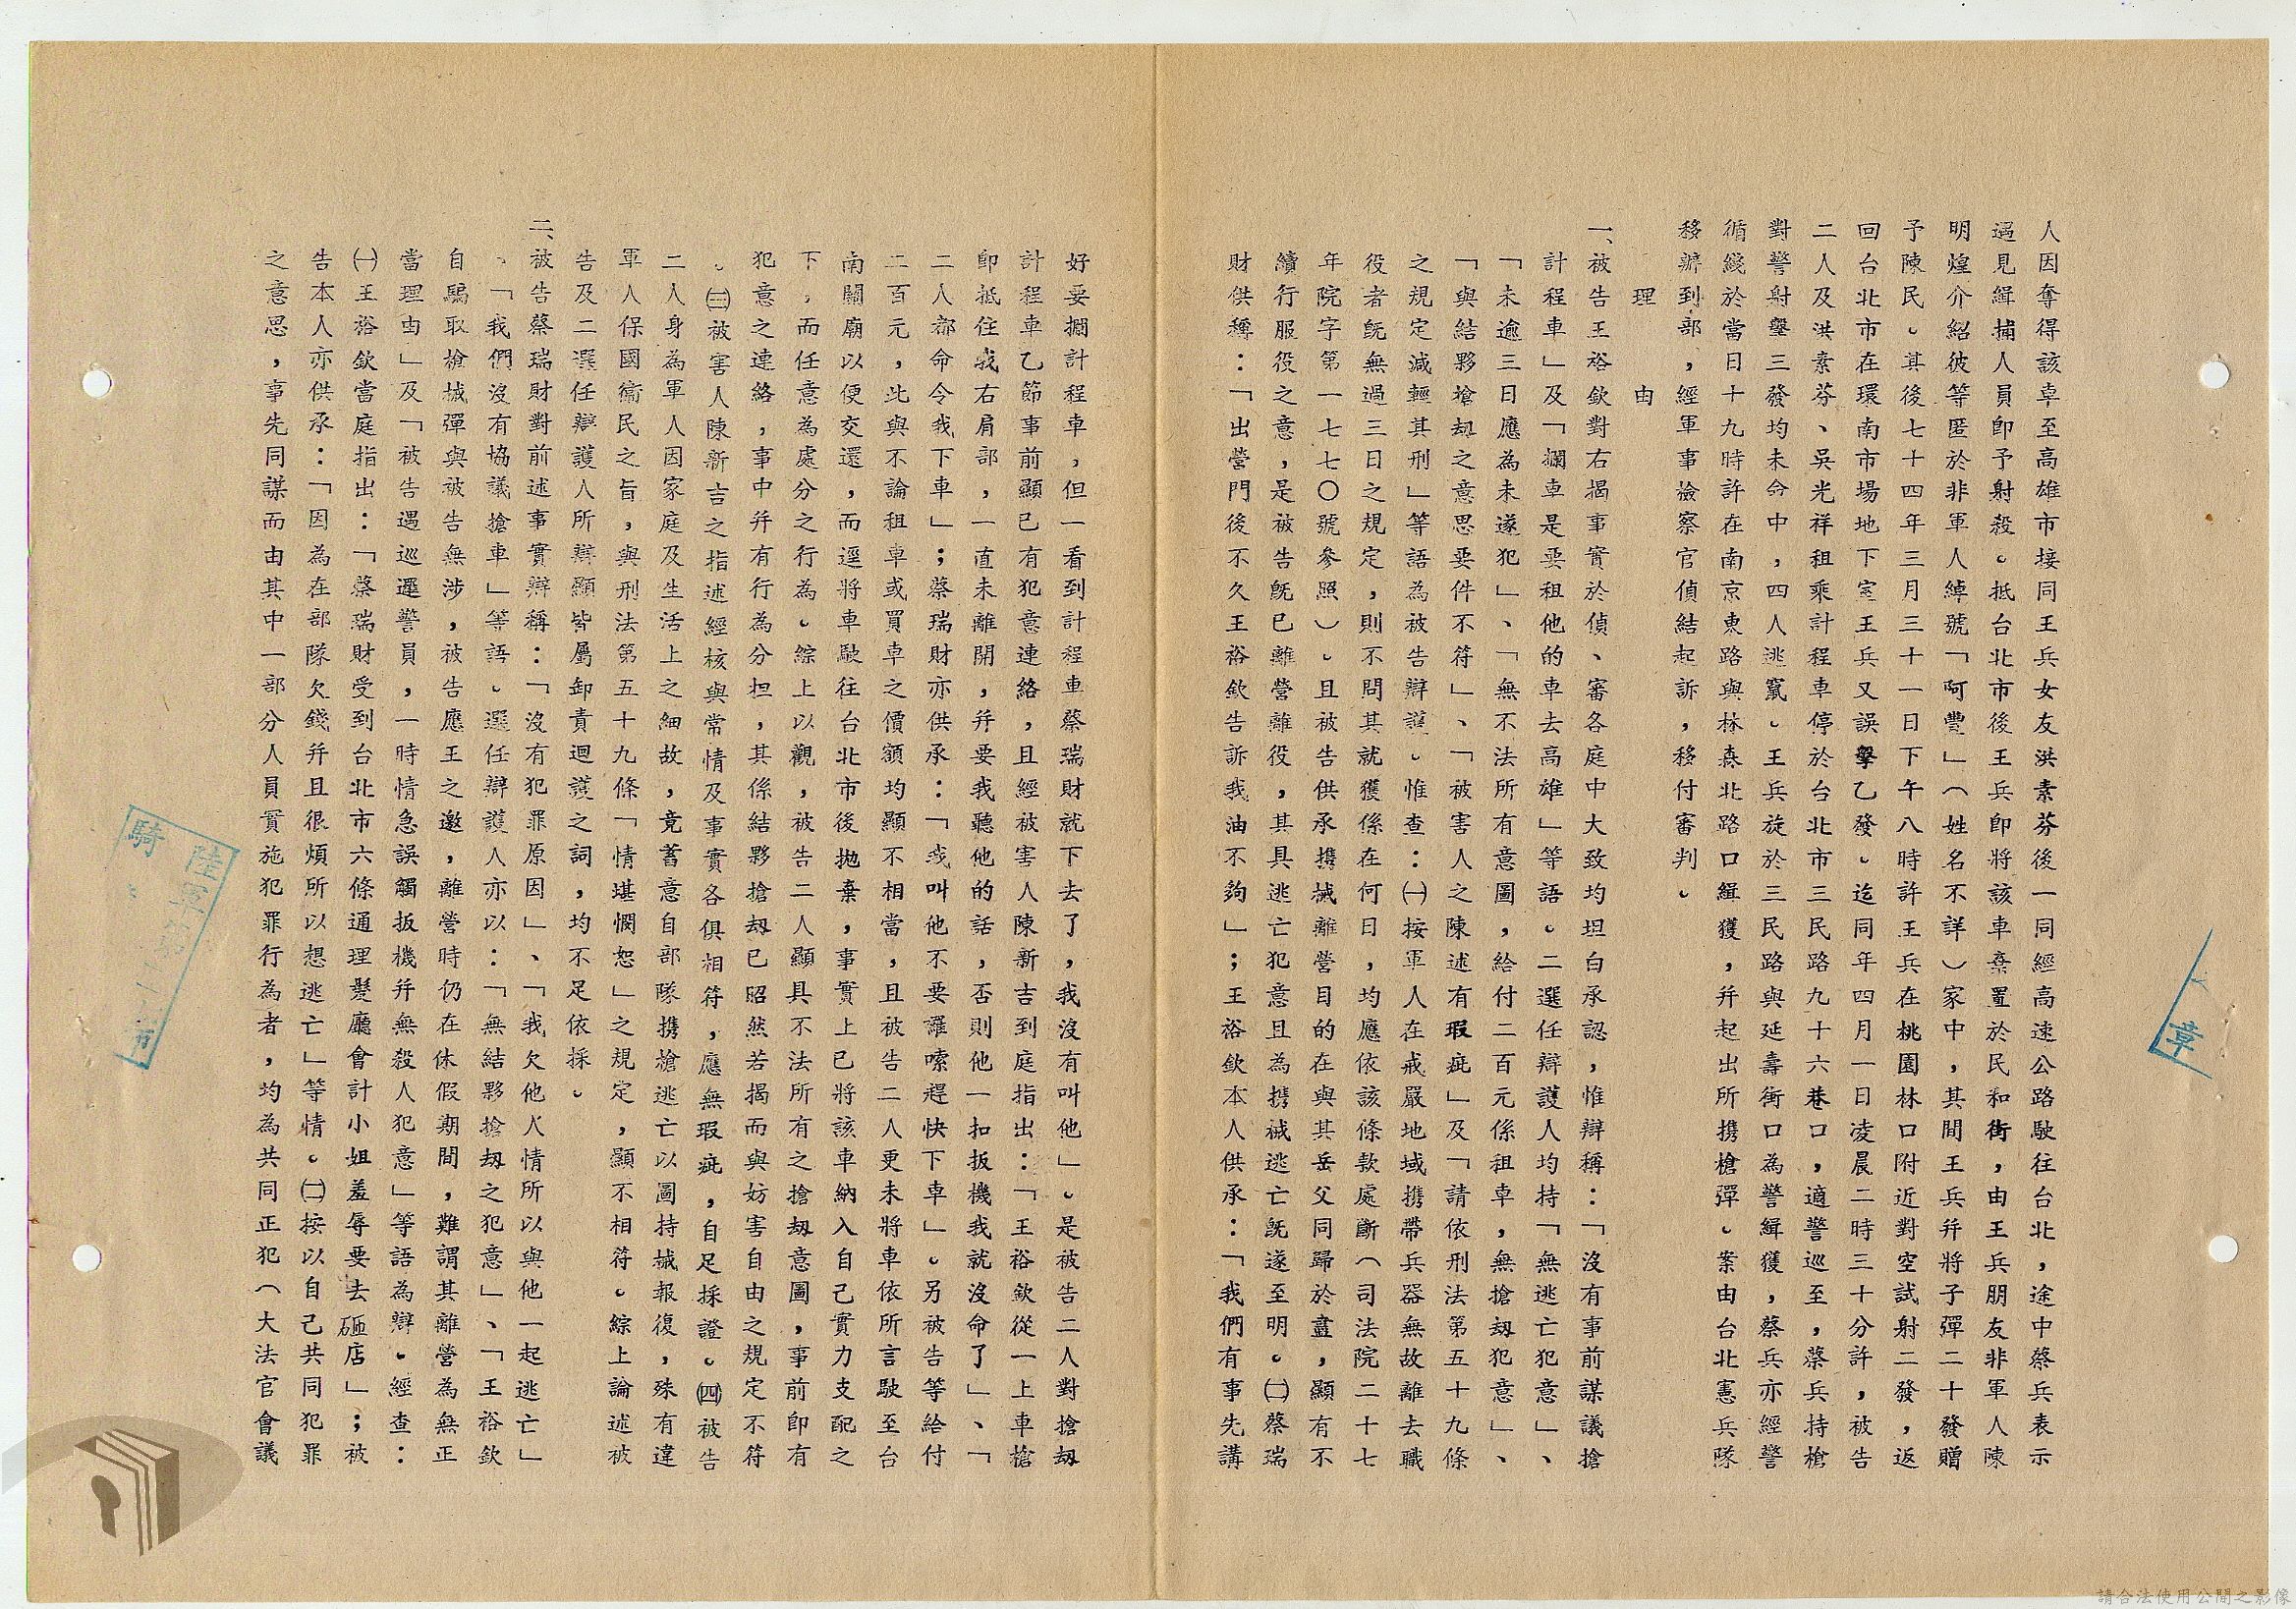 人因奪得該車至高雄市接同王兵女友洪素芬後一同經高速公路駛往台北，途中蔡兵表示
遇見緝捕人員即予射殺。抵台北市後王兵即將該車棄置於民和街，由王兵朋友非軍人陳
明煌介紹彼等匿於非軍人綽號「阿豐」（姓名不詳）家中，其間王兵并將子彈二十發贈
予陳民。其後七十四年三月三十一日下午八時許王兵在桃園林口附近對空試射二發，返
回台北市在環南市場地下室王兵又誤擊乙發。迄同年四月一日凌晨二時三十分許，被告
二人及洪素芬、吳光祥租乘計程車停於台北市三民路九十六巷口，適警巡至，蔡兵持槍
對警射擊三發均未命中，四人逃竄。王兵旋於三民路與延壽街口為警緝獲，蔡兵亦經警
循綫於當日十九時許在南京東路與林森北路口緝獲，并起出所携槍彈。案由台北憲兵隊
移辦到部，經軍事檢察官偵結起訴，移付審判。
理　　由
一、被告王裕欽對右揭事實於偵、審各庭中大致均坦白承認，惟辯稱：「沒有事前謀議搶
計程車」及「攔車是要租他的車去高雄」等語。二選任辯護人均持「無逃亡犯意」、
「未逾三日應為未遂犯」、「無不法所有意圖，給付二百元係租車，無搶劫犯意」、
「與結夥搶劫之意思要件不符」、「被害人之陳述有瑕疵」及「請依刑法第五十九條
之規定減輕其刑」等語為被告辯護。惟查：㈠按軍人在戒嚴地域携帶兵器無故離去職
役者旣無過三日之規定，則不問其就獲係在何日，均應依該條款處斷（司法院二十七
年院字第一七七○號參照）。且被告供承携械離營目的在與其岳父同歸於盡，顯有不
續行服役之意，是被告旣已離營離役，其具逃亡犯意且為携械逃亡旣遂至明。㈡蔡瑞
財供稱：「出營門後不久王裕欽告訴我油不夠」；王裕欽本人供承：「我們有事先講
好要攔計程車，但一看到計程車蔡瑞財就下去了，我沒有叫他」。是被告二人對搶劫
計程車乙節事前顯已有犯意連絡，且經被害人陳新吉到庭指出：「王裕欽從一上車槍
即抵住我右肩部，一直未離開，并要我聽他的話，否則他一扣扳機我就沒命了」、「
二人都命令我下車」；蔡瑞財亦供承：「我叫他不要囉嗦趕快下車」。另被告等給付
二百元，此與不論租車或買車之價額均顯不相當，且被告二人更未將車依所言駛至台
南關廟以便交還，而逕將車駛往台北市後拋棄，事實上已將該車納入自己實力支配之
下，而任意為處分之行為。綜上以觀，被告二人顯具不法所有之搶劫意圖，事前即有
犯意之連絡，事中并有行為分担，其係結夥搶劫已昭然若揭而與妨害自由之規定不符
。㈢被害人陳新吉之指述經核與常情及事實各俱相符，應無瑕疵，自足採證。㈣被告
二人身為軍人因家庭及生活上之細故，竟蓄意自部隊携槍逃亡以圖持械報復，殊有違
軍人保國衞民之旨，與刑法第五十九條「情堪憫恕」之規定，顯不相符。綜上論述被
告及二選任辯護人所辯顯皆屬卸責迴護之詞，均不足依採。
二、被告蔡瑞財對前述事實辯稱：「沒有犯罪原因」、「我欠他人情所以與他一起逃亡」
、「我們沒有協議搶車」等語。選任辯護人亦以：「無結夥搶劫之犯意」、「王裕欽
自騙取槍械彈與被告無涉，被告應王之邀，離營時仍在休假期間，難謂其離營為無正
當理由」及「被告遇巡邏警員，一時情急誤觸扳機并無殺人犯意」等語為辯。經查：
㈠王裕欽當庭指出：「蔡瑞財受到台北市六條通理髮廳會計小姐羞辱要去砸店」；被
告本人亦供承：「因為在部隊欠錢并且很煩所以想逃亡」等情。㈡按以自己共同犯罪
之意思，事先同謀而由其中一部分人員實施犯罪行為者，均為共同正犯（大法官會議
章
請合法使用公開之影像